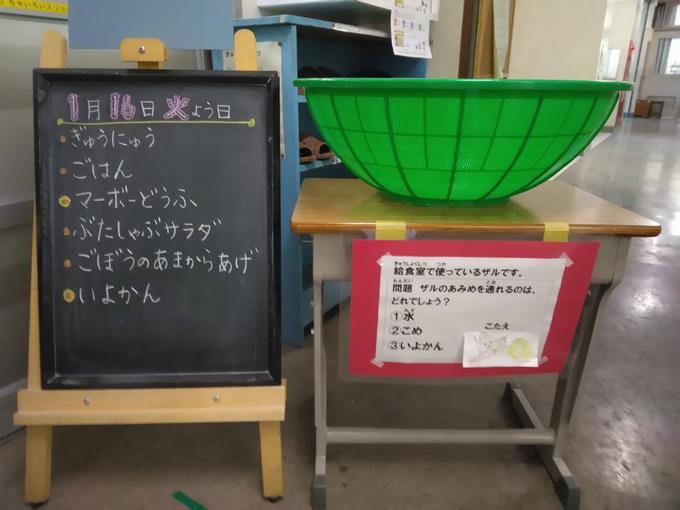 ちゃいろいスリッ
1月16日火よう日
ぎゅうにゅう
ごはん
マーボーどうふ
ぶたしゃぶサラダ
ごぼうのあまからあげ
いよかん
きゅうしょくしつ つか
給食室で使っているザルです。
もんだい とお
問題 ザルのあみめを通れるのは、
どれでしょう?
①水
②こめ
③いよかん
こたえ